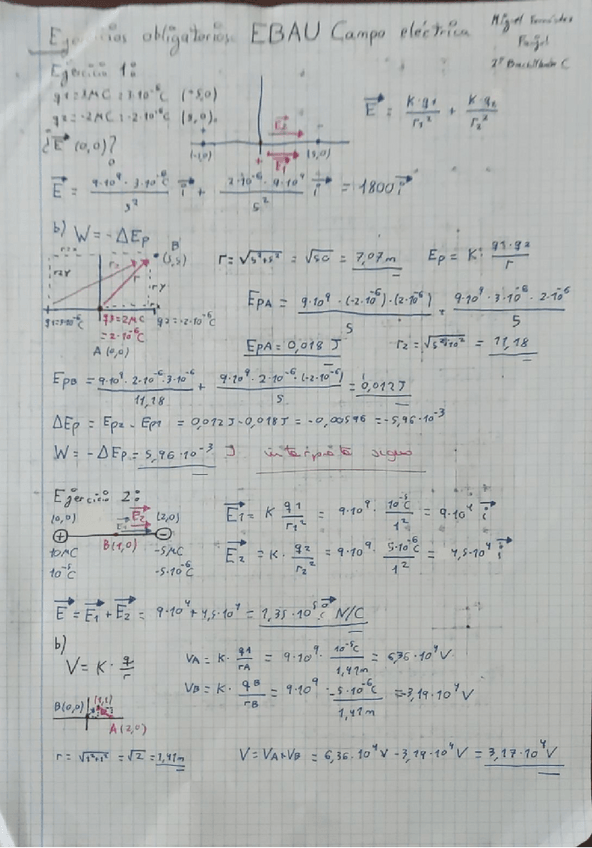 Ejercicios obligatorios EBAU Campo eléctrico
Miguel Fernández
2º Bachillerato C
Ejercicio 1:
q1=3μC=3·10⁻⁶C (-5,0)
q2=-2μC=-2·10⁻⁶C (5,0).
¿E⃗ (0,0)?
E⃗ = K·q1/r1² + K·q2/r2²
E2
(-5,0) + (5,0) -
E1
E⃗ = 9·10⁹·3·10⁻⁶C/5² i⃗ + 2·10⁻⁶·9·10⁹/5² i⃗ = 1800 i⃗
b) W = -ΔEp
B (5,5)
r = √5²+5² = √50 = 7,07m
Ep = K· q1·q2/r
q1=3·10⁻⁶C q3=2μC q2=-2·10⁻⁶C
=2·10⁻⁶C
A (0,0)
EpA = 9·10⁹·(-2·10⁻⁶)·(2·10⁻⁶)/5 + 9·10⁹·3·10⁻⁶·2·10⁻⁶/5
EpA = 0,018 J
r2 = √5²+10² = 11,18
EpB = 9·10⁹·2·10⁻⁶·3·10⁻⁶/11,18 + 9·10⁹·2·10⁻⁶·(-2·10⁻⁶)/5 = 0,012J
ΔEp = Ep2 - Ep1 = 0,012J-0,018J = -0,00596 = -5,96·10⁻³
W = -ΔEp = 5,96·10⁻³ J interpreta signo
Ejercicio 2:
(0,0) E1 E2 (2,0)
+ B(1,0) -
10μC -5μC
10⁻⁵C -5·10⁻⁶C
E1 = K q1/r1² = 9·10⁹· 10⁻⁵C/1² = 9·10⁴ i⃗
E2 = K· q2/r2² = 9·10⁹· 5·10⁻⁶C/1² = 4,5·10⁴ i⃗
E⃗ = E1 + E2 = 9·10⁴+4,5·10⁴ = 1,35·10⁵ i⃗ N/C
b)
V = K· q/r
VA = K· q1/rA = 9·10⁹· 10⁻⁵C/1,41m = 6,36·10⁴V
VB = K· qB/rB = 9·10⁹· -5·10⁻⁶C/1,41m = -3,19·10⁴V
B(0,0) (1,1)
A(2,0)
r = √1²+1² = √2 = 1,41m
V = VA+VB = 6,36·10⁴V-3,19·10⁴V = 3,17·10⁴V